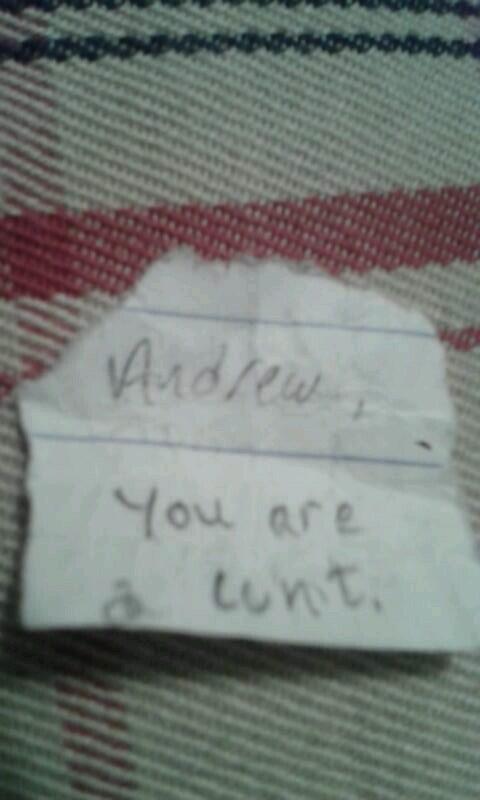 Andrew,
You are
a cunt.